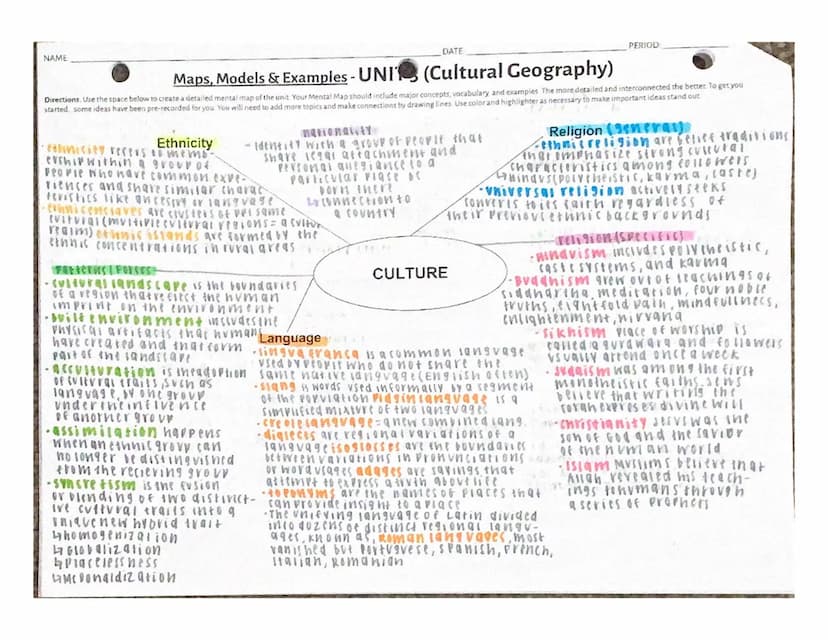 NAME DATE PERIOD
Maps, Models & Examples - UNIT 3 (Cultural Geography)
Directions. Use the space below to create a detailed mental map of the unit. Your Mental Map should include major concepts, vocabulary, and examples. The more detailed and interconnected the better. To get you
started, some ideas have been pre-recorded for you. You will need to add more topics and make connections by drawing lines. Use color and highlighter as necessary to make important ideas stand out.
Ethnicity
· ethnicity refers to memb-
ership within a group of
people who have common expe-
riences and share similar charac-
teristics like ancestry or language
· ethnic enclaves are clusters of ppl same
cultural (multiple cultural regions = a cultural
realm) ethnic islands are formed by the
ethnic concentrations in rural areas
nationality
- identity with a group of people that
share legal attachment and
personal allegiance to a
particular place bc
born there
↳ connection to
a country
Religion (general)
· ethnic religion are belief traditions
that emphasize strong cultural
characteristics among followers
↳ hindus (polytheistic, karma, caste)
· universal religion actively seeks
converts to its faith regardless of
their previous ethnic backgrounds
CULTURE
religion (specific)
· hinduism includes polytheistic,
caste systems, and karma
· buddhism grew out of teachings of
siddhartha, meditation, four noble
truths, eightfold path, mindfullness,
enlightenment, nirvana
· sikhism place of worship is
called a gurdwara and followers
usually attend once a week
· judaism was among the first
monotheistic faiths. Jews
believe that writing the
torah exposes divine will
· christianity Jesus was the
son of God and the savior
of the human world
· Islam muslims believe that
Allah revealed his teach-
ings to humans through
a series of prophets
Patterns/Forces
· cultural landscape is the boundaries
of a region that reflect the human
imprint on the environment
· built environment includes the
physical artifacts that humans
have created and that form
part of the landscape
· acculturation is the adoption
of cultural traits, such as
language, by one group
under the influence
of another group
· assimilation happens
when an ethnic group can
no longer be distinguished
from the recieving group
· syncretism is the fusion
or blending of two distinct-
ive cultural traits into a
unique new hybrid trait
↳ homogenization
↳ globalization
↳ placelessness
↳ McDonaldization
Language
· lingua franca is a common language
used by people who do not share the
same native language (English often)
· slang is words used informally by a segment
of the population pidgin language is a
simplified mixture of two languages
· creole language = a new combined lang.
· dialects are regional variations of a
language isoglosses are the boundaries
between variations in pronunciations
or word usages adages are sayings that
attempt to express a truth about life
· toponyms are the names of places that
can provide insight to a place
· The unifying language of Latin divided
into dozens of distinct regional langu-
ages, known as, roman languages, most
vanished but portuguese, spanish, french,
italian, romanian